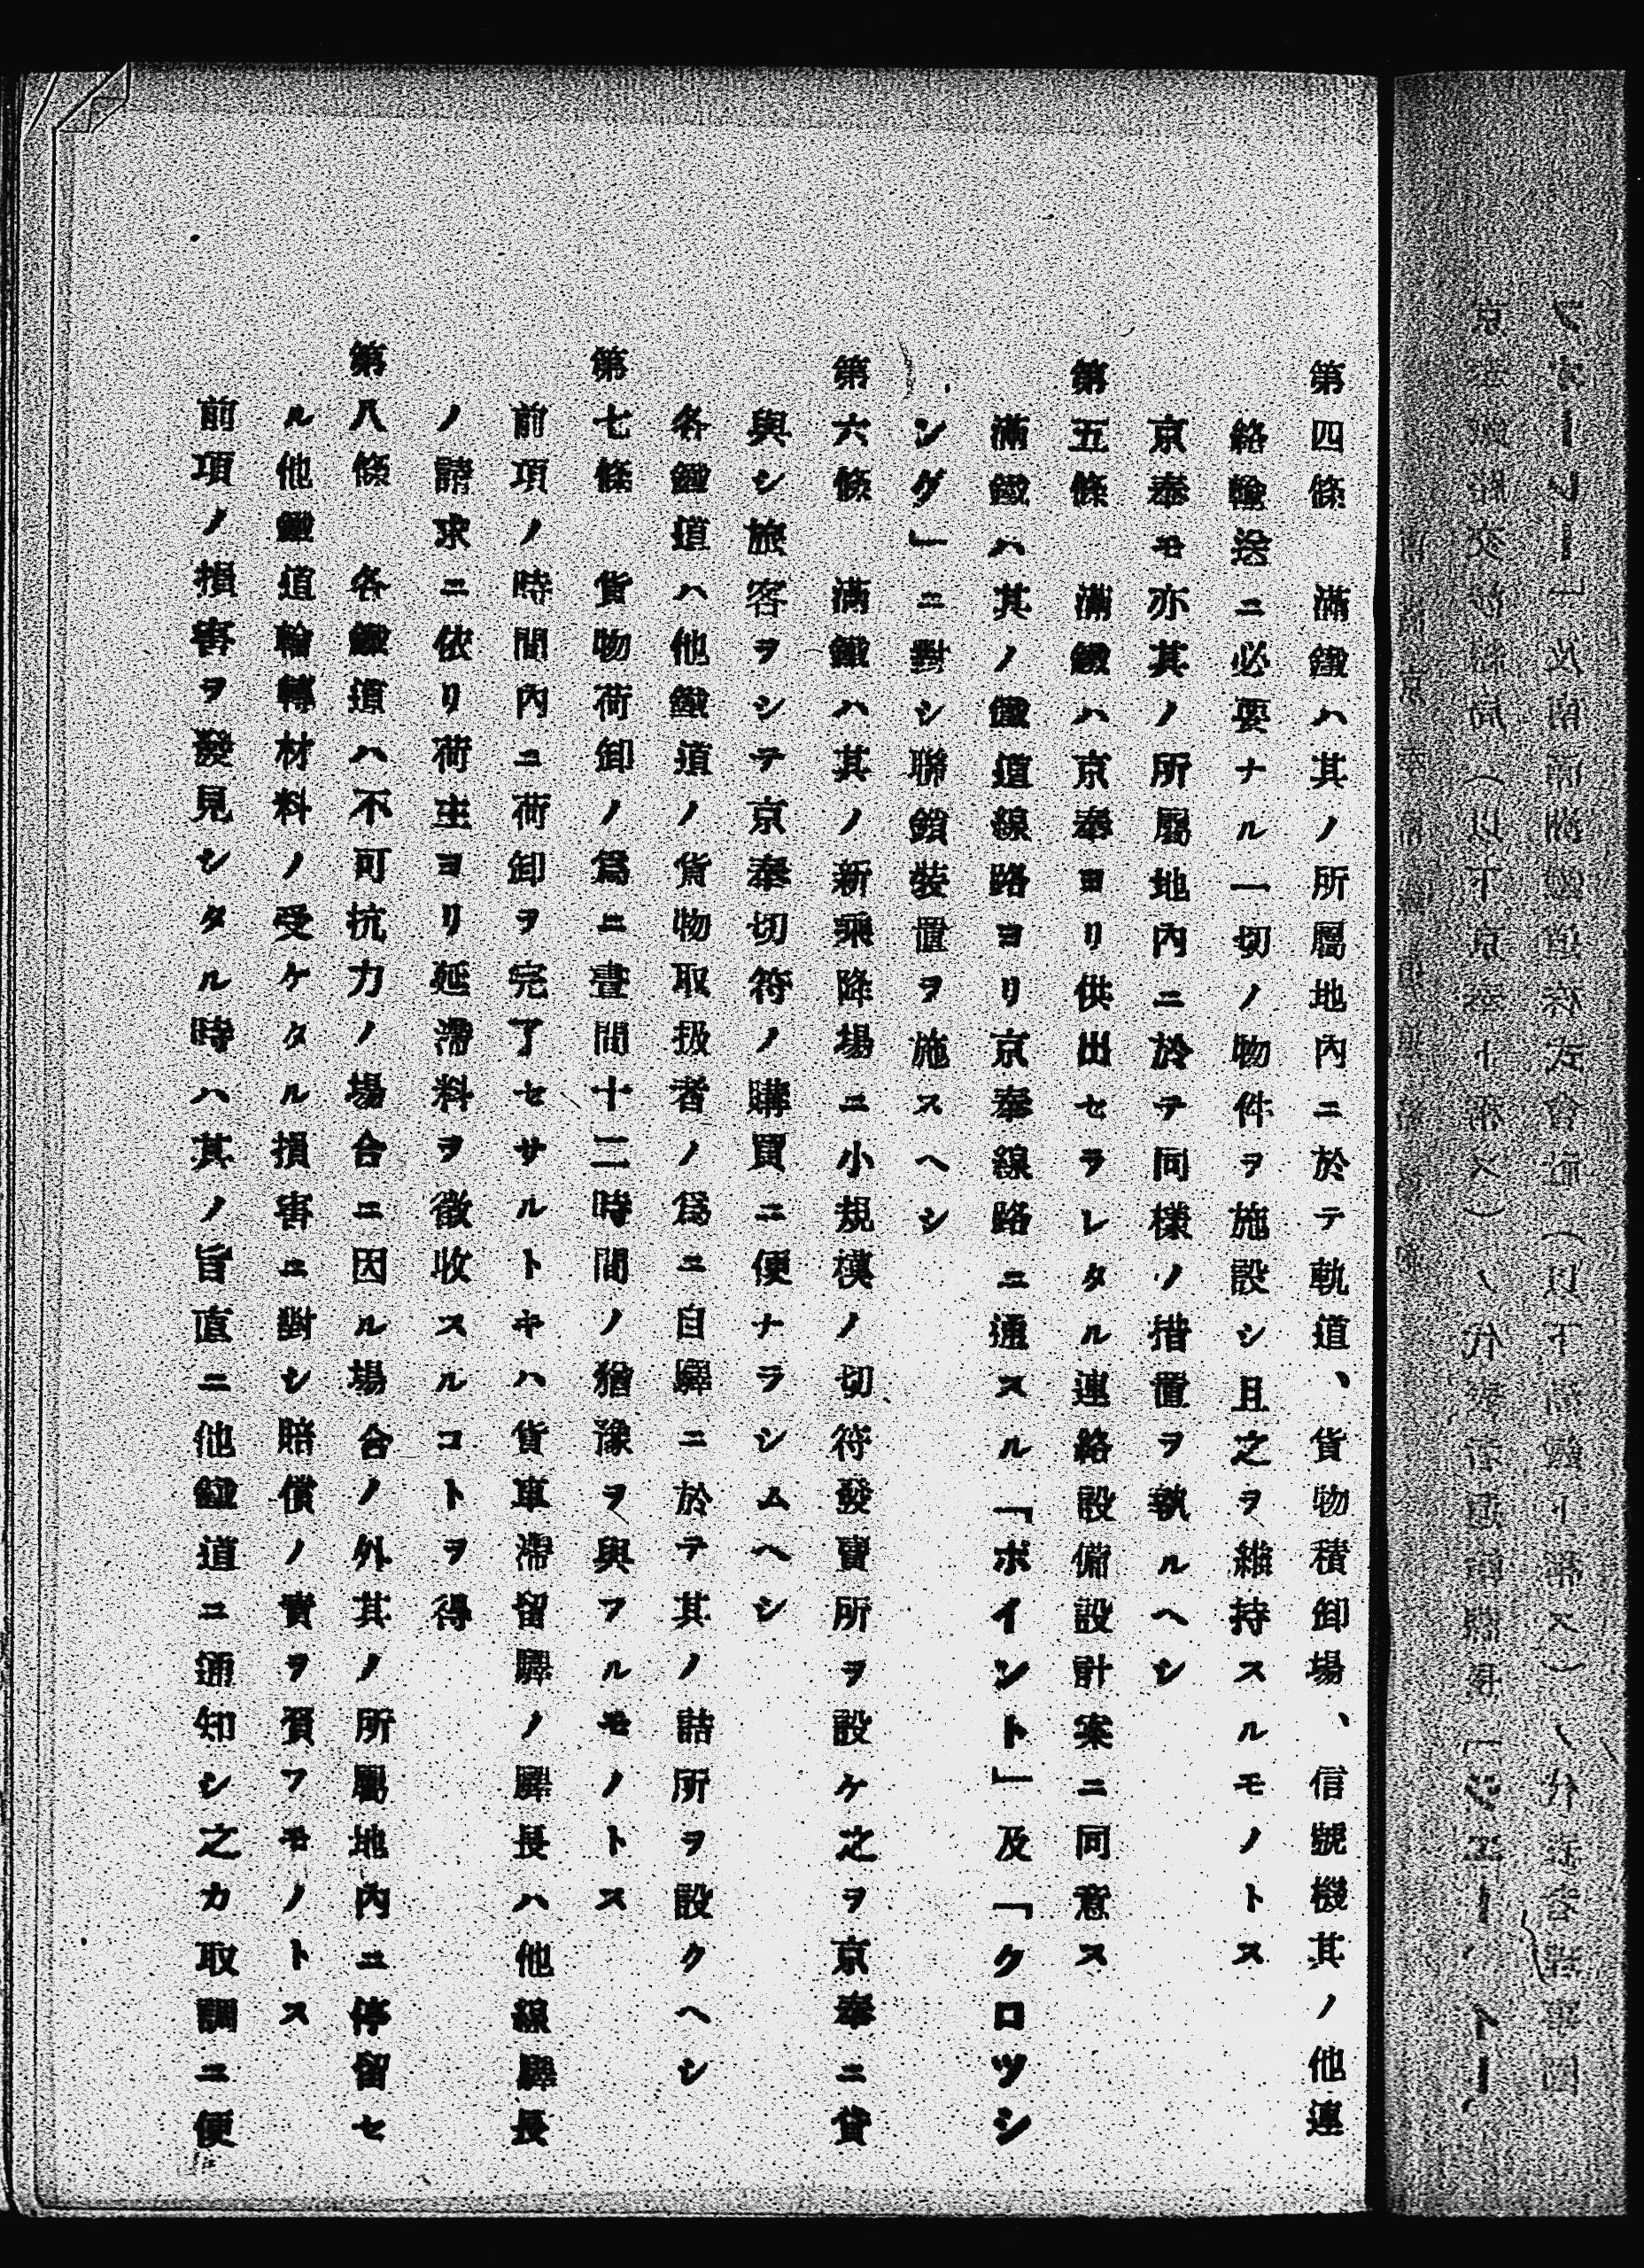 第四條　滿鐵ハ其ノ所屬地內ニ於テ軌道、貨物積卸場、信號機其ノ他連
絡輸送ニ必要ナル一切ノ物件ヲ施設シ且之ヲ維持スルモノトス
京奉モ亦其ノ所屬地內ニ於テ同樣ノ措置ヲ執ルヘシ
第五條　滿鐵ハ京奉ヨリ供出セラレタル連絡設備設計案ニ同意ス
滿鐵ハ其ノ鐵道線路ヨリ京奉線路ニ通スル「ポイント」及「クロツシ
ング」ニ對シ聯鎖裝置ヲ施スヘシ
第六條　滿鐵ハ其ノ新乘降場ニ小規模ノ切符發賣所ヲ設ケ之ヲ京奉ニ貸
與シ旅客ヲシテ京奉切符ノ購買ニ便ナラシムヘシ
各鐵道ハ他鐵道ノ貨物取扱者ノ爲ニ自驛ニ於テ其ノ詰所ヲ設クヘシ
第七條　貨物荷卸ノ爲ニ晝間十二時間ノ猶豫ヲ與フルモノトス
前項ノ時間內ニ荷卸ヲ完了セサルトキハ貨車滯留驛ノ驛長ハ他線驛長
ノ請求ニ依リ荷主ヨリ延滯料ヲ徵收スルコトヲ得
第八條　各鐵道ハ不可抗力ノ場合ニ因ル場合ノ外其ノ所屬地內ニ停留セ
ル他鐵道輪轉材料ノ受ケタル損害ニ對シ賠償ノ責ヲ負フモノトス
前項ノ損害ヲ發見シタル時ハ其ノ旨直ニ他鐵道ニ通知シ之カ取調ニ便